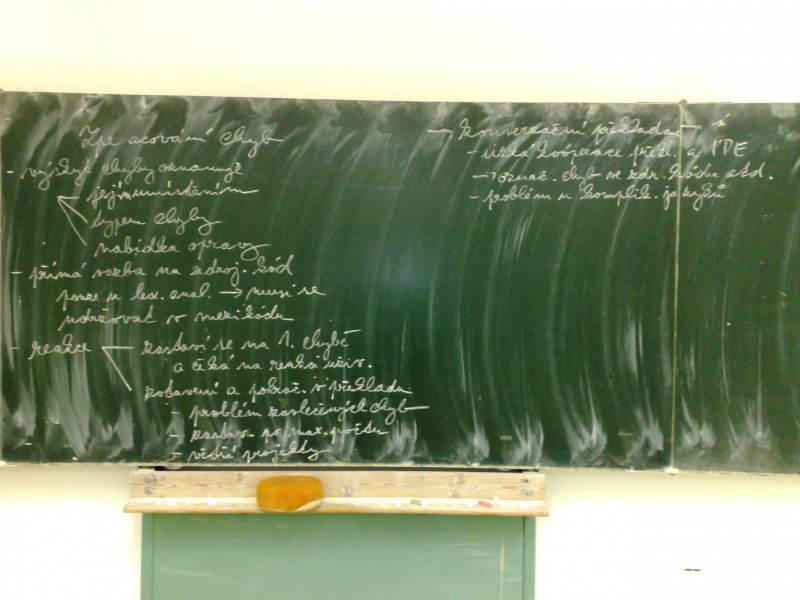 Zpracování chyb
- výskyt chyby oznamuje
její umístěním
typem chyby
nabídka opravy
- přímá vazba na zdroj. kód
pouze u lex. anal. → musí se
udržovat v mezikódu
- reakce
zastaví se na 1. chybě
a čeká na reakci uživ.
zotavení a pokrač. v překladu
- problém zavlečených chyb
- zastav. po max. počtu
- větší projekty
→ konverzační překlada
- úzká kooperace překl. a IDE
- označ. chyb ve zdr. kódu atd.
- problém u komplik. jazyků